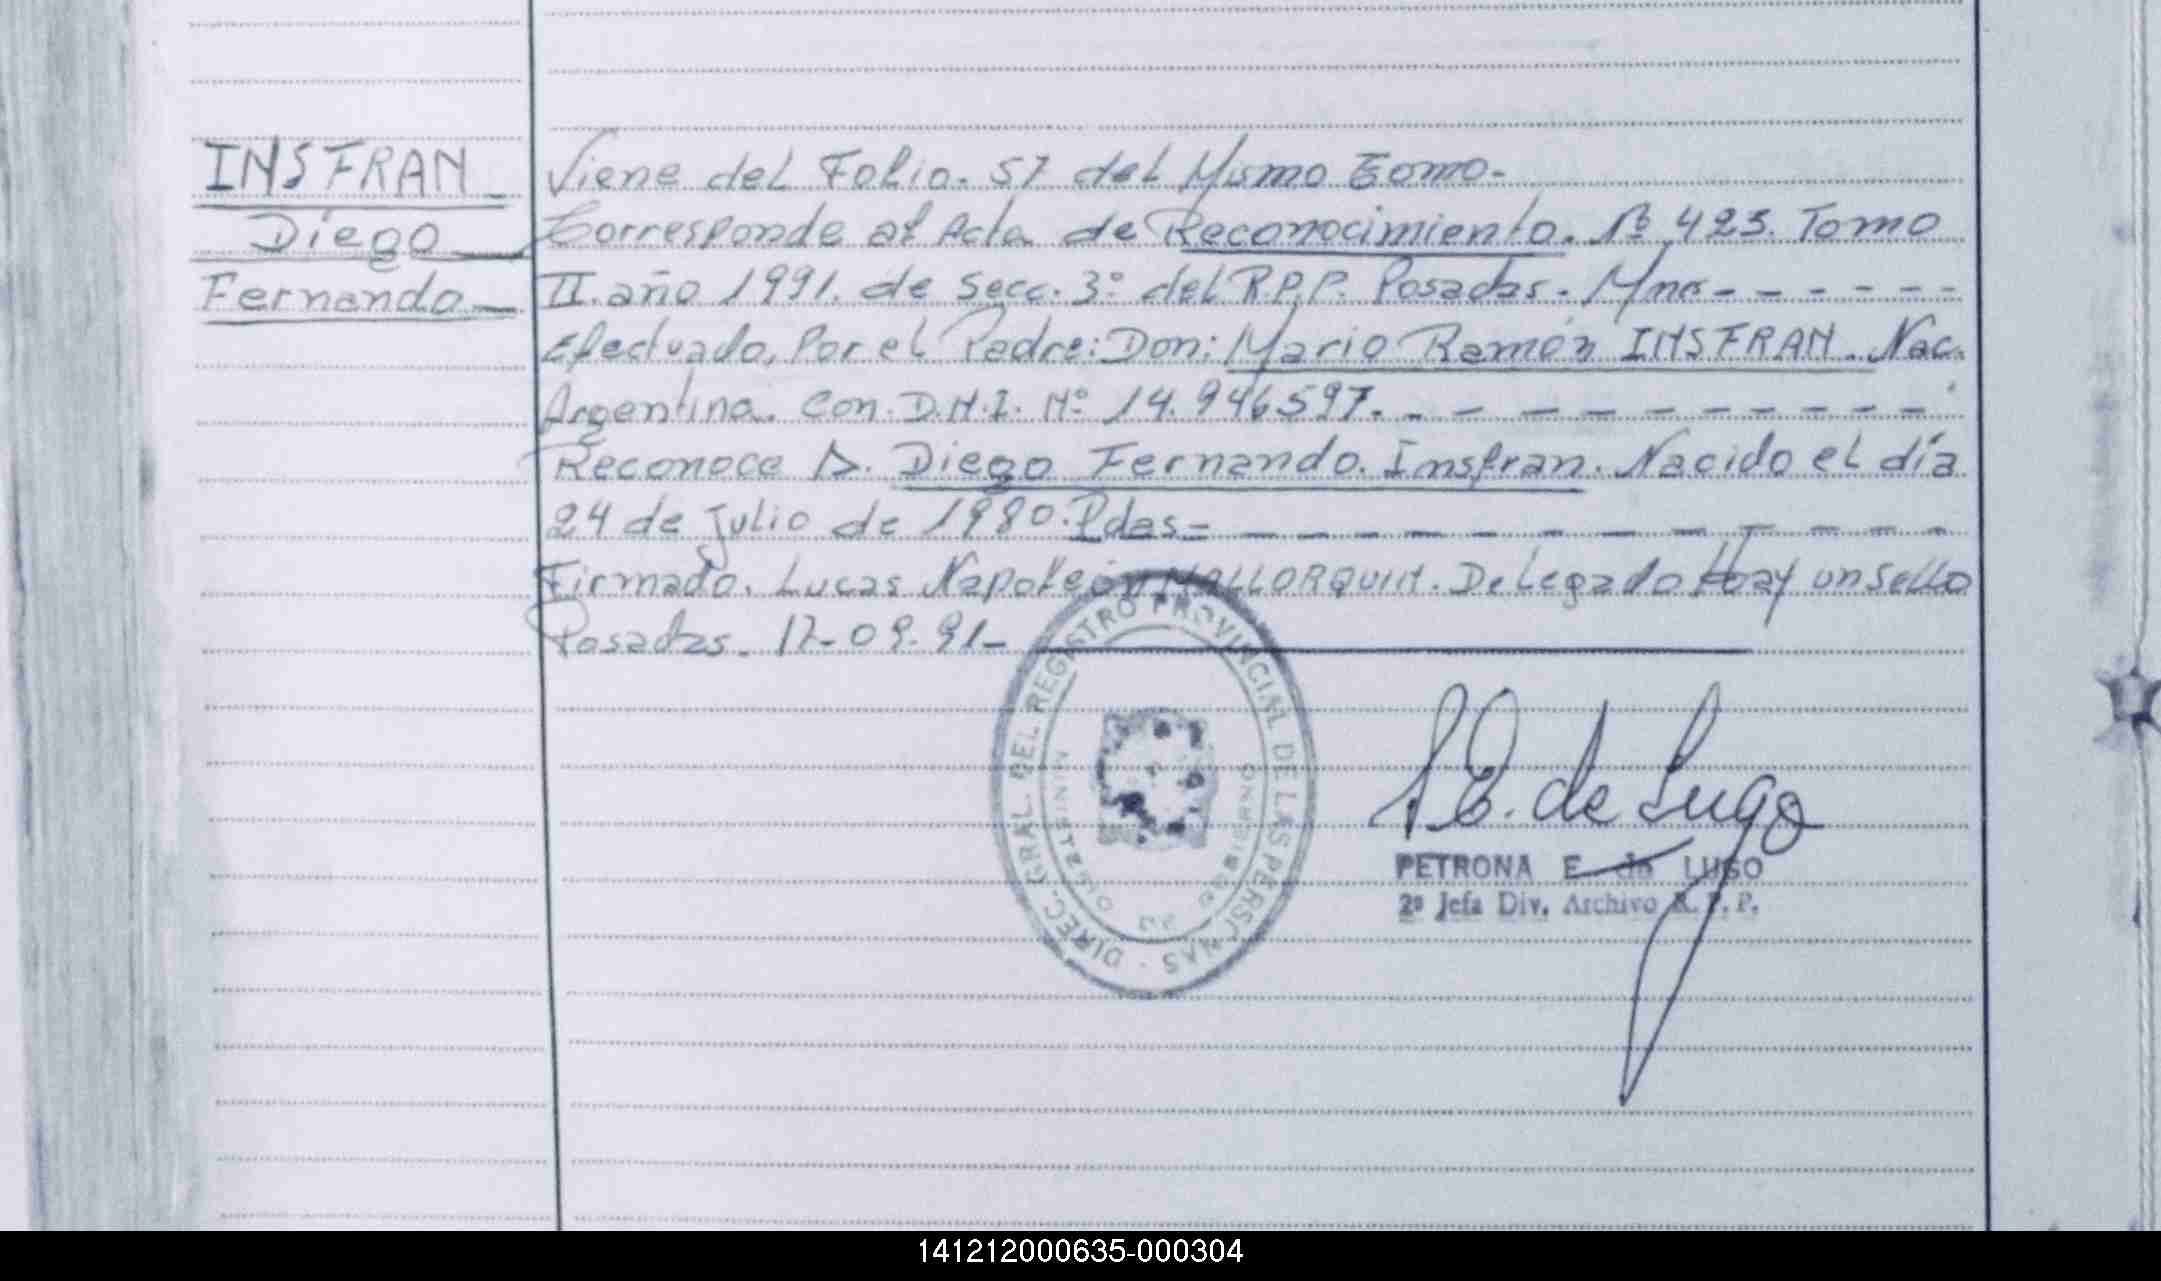 INSFRAN
Diego
Fernando
Viene del Folio. 57 del Mismo Tomo.
Corresponde al Acta de Reconocimiento. Nº 423. Tomo
II. año 1991. de Secc. 3º del R.P.P. Posadas. Mnes
Efectuado, Por el Padre: Don: Mario Ramón INSFRAN. Nac.
Argentina. Con. D.N.I. Nº 14.946597.
Reconoce A. Diego Fernando. Insfran. Nacido el día
24 de Julio de 1980. Pdas=
Firmado. Lucas Napoleón MALLORQUIN. Delegado Hay un Sello
Posadas. 17-09.91-
DIREC. GRAL. DEL REGISTRO PROVINCIAL DE LAS PERSONAS
MINISTERIO DE GOBIERNO
P E. de Lugo
PETRONA E. de LUGO
2º Jefa Div. Archivo R. P. P.
141212000635-000304